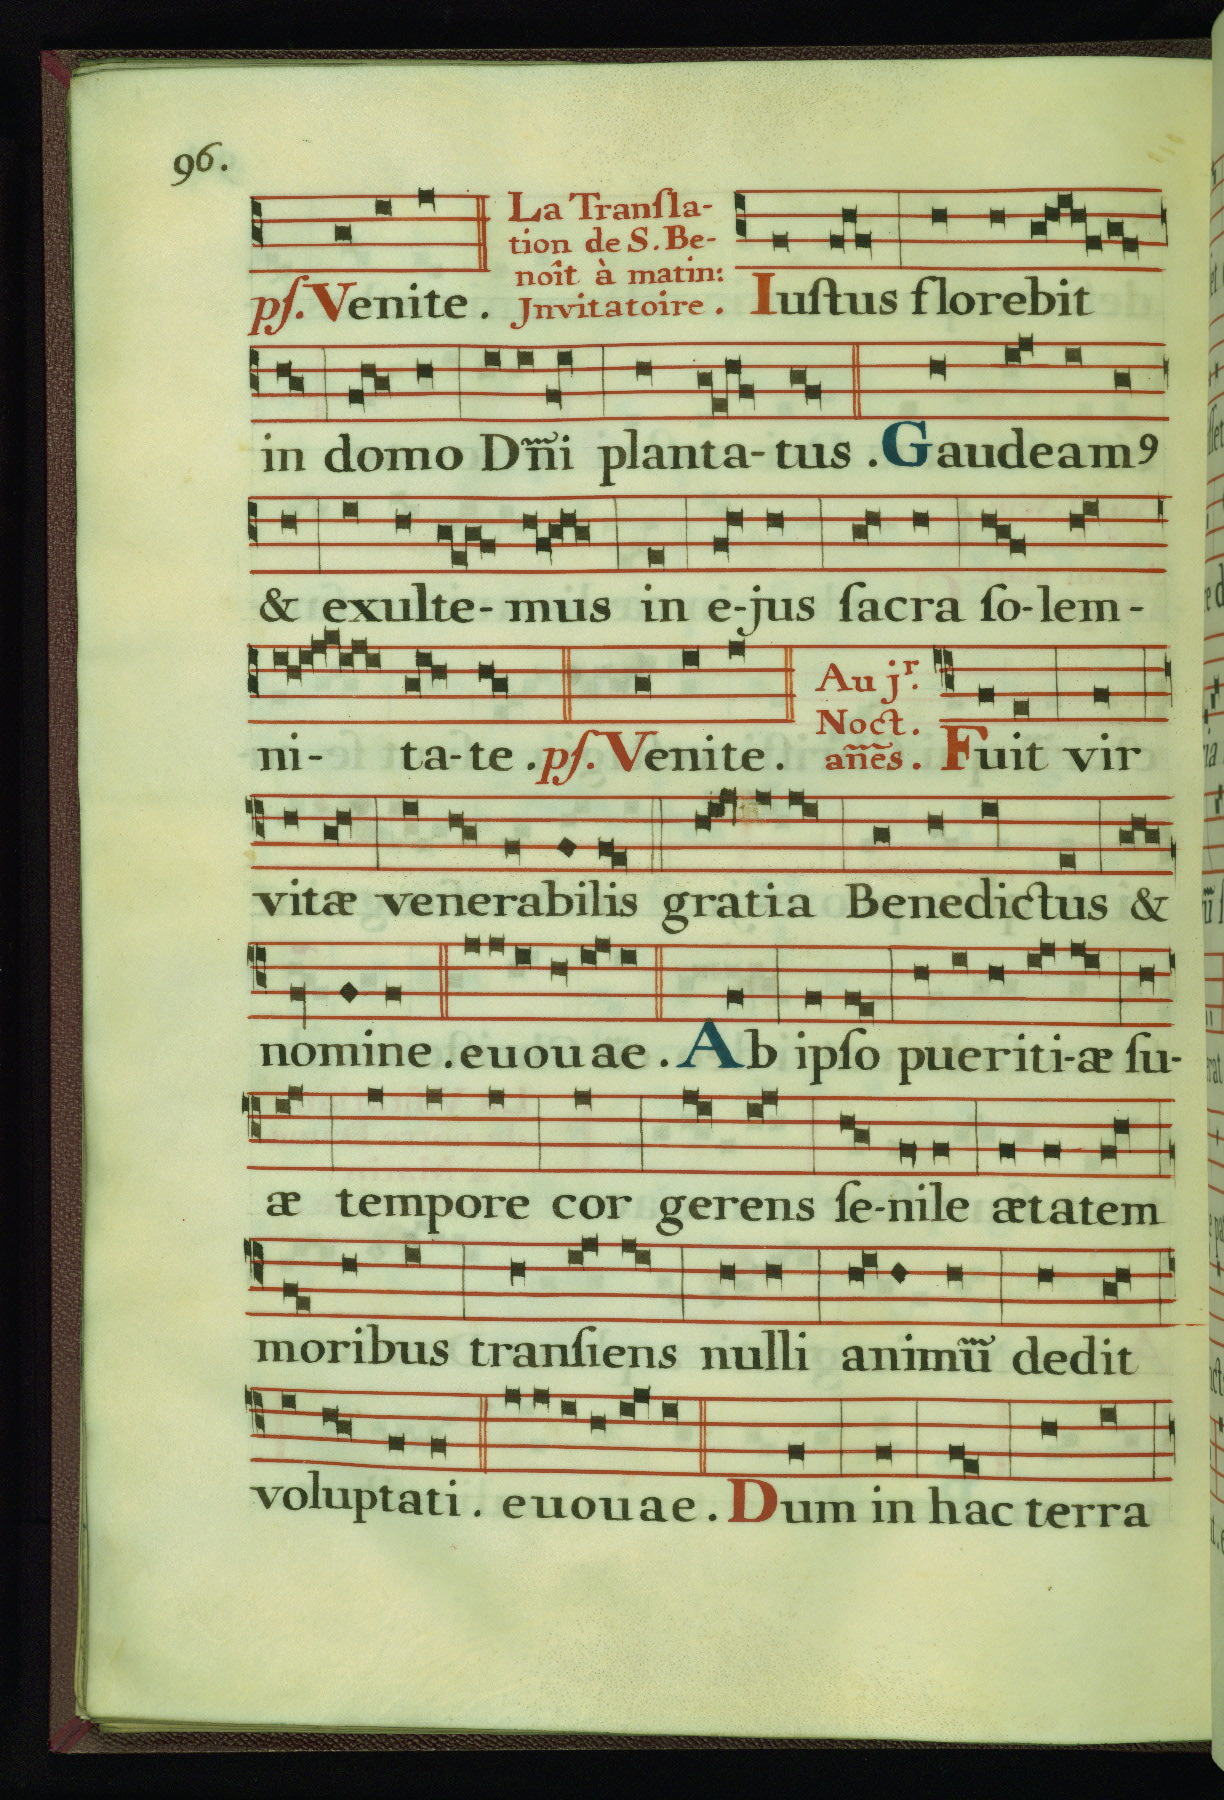 96.
pſ. Venite . La Tranſla-
tion de S. Be-
noît à matin:
Jnvitatoire . Iuſtus florebit
in domo Dn̄i planta-tus . Gaudeam9
& exulte-mus in e-jus ſacra ſo-lem-
ni- ta-te . pſ. Venite . Au jr.
Noct.
añe͂s . Fuit vir
vitæ venerabilis gratia Benedictus &
nomine . euouae . Ab ipſo pueriti-æ ſu-
æ tempore cor gerens ſe-nile ætatem
moribus tranſiens nulli animu͂ dedit
voluptati . euouae . Dum in hac terra